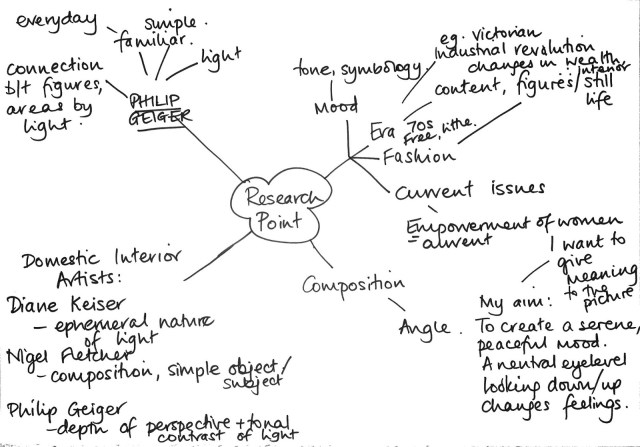 everyday
simple.
familiar.
light
connection
b/t figures,
areas by
light.
PHILIP
GEIGER
tone, symbology.
Mood
eg. Victorian
Industrial revolution
changes in wealth,
content, figures/interior
still
life
Era 70s
free, lithe.
Fashion
Current issues
Empowerment of women
Research
Point
Domestic Interior
Artists:
Diane Keiser
- ephemeral nature
of light
Nigel Fletcher
- composition, simple object/
subject
Philip Geiger
- depth of perspective + tonal
contrast of light
Composition
Angle.
I want to
give
meaning
to the
picture
My aim:
To create a serene,
peaceful mood.
A neutral eyelevel
looking down/up
changes feelings.